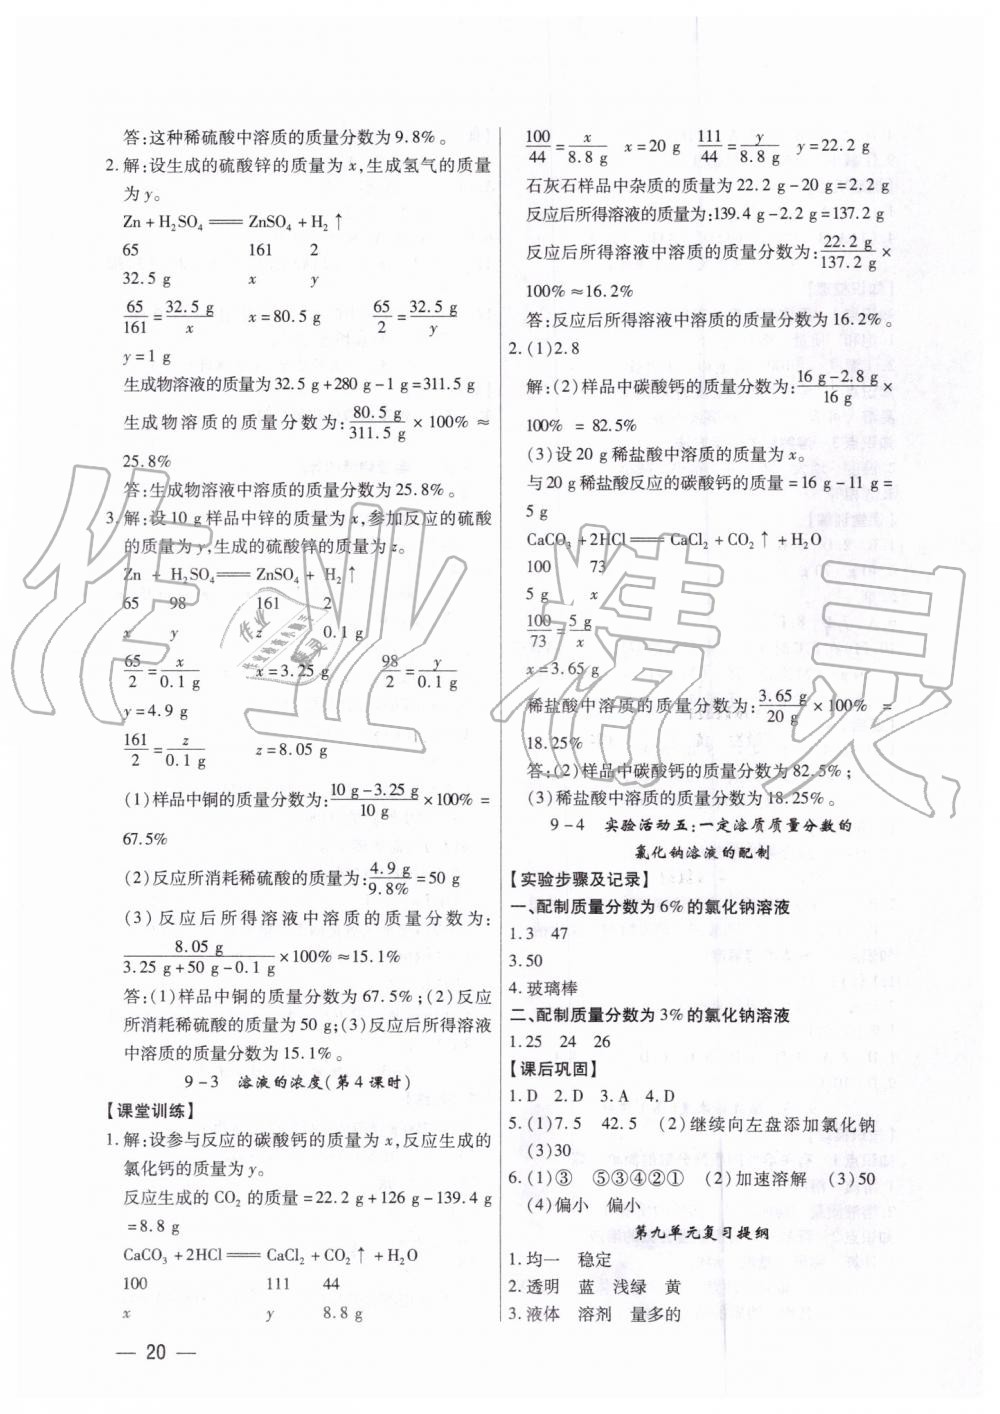 答:这种稀硫酸中溶质的质量分数为9.8%。
2.解:设生成的硫酸锌的质量为x,生成氢气的质量
为y。
Zn+H₂SO₄══ZnSO₄+H₂↑
65 161 2
32.5 g x y
65/161=32.5 g/x x=80.5 g 65/2=32.5 g/y
y=1 g
生成物溶液的质量为32.5 g+280 g-1 g=311.5 g
生成物溶质的质量分数为:80.5 g/311.5 g×100%≈
25.8%
答:生成物溶液中溶质的质量分数为25.8%。
3.解:设10 g样品中锌的质量为x,参加反应的硫酸
的质量为y,生成的硫酸锌的质量为z。
Zn + H₂SO₄══ZnSO₄+ H₂↑
65 98 161 2
x y z 0.1 g
65/2=x/0.1 g x=3.25 g 98/2=y/0.1 g
y=4.9 g
161/2=z/0.1 g z=8.05 g
(1)样品中铜的质量分数为:10 g-3.25 g/10 g×100%=
67.5%
(2)反应所消耗稀硫酸的质量为:4.9 g/9.8%=50 g
(3)反应后所得溶液中溶质的质量分数为:
8.05 g/3.25 g+50 g-0.1 g×100%≈15.1%
答:(1)样品中铜的质量分数为67.5%;(2)反应
所消耗稀硫酸的质量为50 g;(3)反应后所得溶液
中溶质的质量分数为15.1%。
9-3 溶液的浓度(第4课时)
【课堂训练】
1.解:设参与反应的碳酸钙的质量为x,反应生成的
氯化钙的质量为y。
反应生成的CO₂的质量=22.2 g+126 g-139.4 g
=8.8 g
CaCO₃+2HCl══CaCl₂+CO₂↑+H₂O
100 111 44
x y 8.8 g
— 20 —
100/44=x/8.8 g x=20 g 111/44=y/8.8 g y=22.2 g
石灰石样品中杂质的质量为22.2 g-20 g=2.2 g
反应后所得溶液的质量为:139.4 g-2.2 g=137.2 g
反应后所得溶液中溶质的质量分数为:22.2 g/137.2 g×
100%≈16.2%
答:反应后所得溶液中溶质的质量分数为16.2%。
2.(1)2.8
解:(2)样品中碳酸钙的质量分数为:16 g-2.8 g/16 g×
100% = 82.5%
(3)设20 g稀盐酸中溶质的质量为x。
与20 g稀盐酸反应的碳酸钙的质量=16 g-11 g=
5 g
CaCO₃+2HCl══CaCl₂+CO₂↑+H₂O
100 73
5 g x
100/73=5 g/x
x=3.65 g
稀盐酸中溶质的质量分数为:3.65 g/20 g×100% =
18.25%
答:(2)样品中碳酸钙的质量分数为82.5%;
(3)稀盐酸中溶质的质量分数为18.25%。
9-4 实验活动五:一定溶质质量分数的
氯化钠溶液的配制
【实验步骤及记录】
一、配制质量分数为6%的氯化钠溶液
1.3 47
3.50
4.玻璃棒
二、配制质量分数为3%的氯化钠溶液
1.25 24 26
【课后巩固】
1.D 2.D 3.A 4.D
5.(1)7.5 42.5 (2)继续向左盘添加氯化钠
(3)30
6.(1)③ ⑤③④②① (2)加速溶解 (3)50
(4)偏小 偏小
第九单元复习提纲
1.均一 稳定
2.透明 蓝 浅绿 黄
3.液体 溶剂 量多的
作业精灵